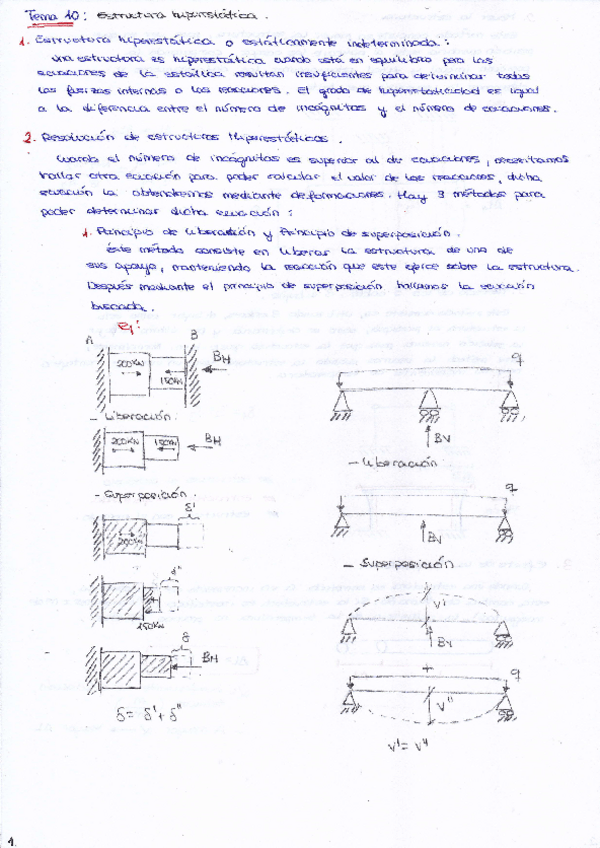 Tema 10: Estructura hiperestática.
1. Estructura hiperestática o estáticamente indeterminada:
Una estructura es hiperestática cuando está en equilibrio pero las
ecuaciones de la estática resultan insuficientes para determinar todas
las fuerzas internas o las reacciones. El grado de hiperestaticidad es igual
a la diferencia entre el número de incógnitas y el número de ecuaciones.
2. Resolución de estructuras Hiperestáticas.
Cuando el número de incógnitas es superior al de ecuaciones, necesitamos
hallar otra ecuación para poder calcular el valor de las reacciones, dicha
ecuación la obtendremos mediante deformaciones. Hay 3 métodos para
poder determinar dicha ecuación:
1. Principio de liberación y Principio de superposición.
Éste método consiste en liberar la estructura de uno de
sus apoyos, manteniendo la reacción que este ejerce sobre la estructura.
Después mediante el principio de superposición hallamos la ecuación
buscada.
Ej:
A B
200KN 150KN BH
q
BV
- Liberación.
200KN 150KN BH
- Liberación.
q
BV
- Superposición
δ'
200KN
δ"
150KN
δ
BH
δ = δ' + δ"
- Superposición
v'
BV
+
q
v"
v' = v"
1